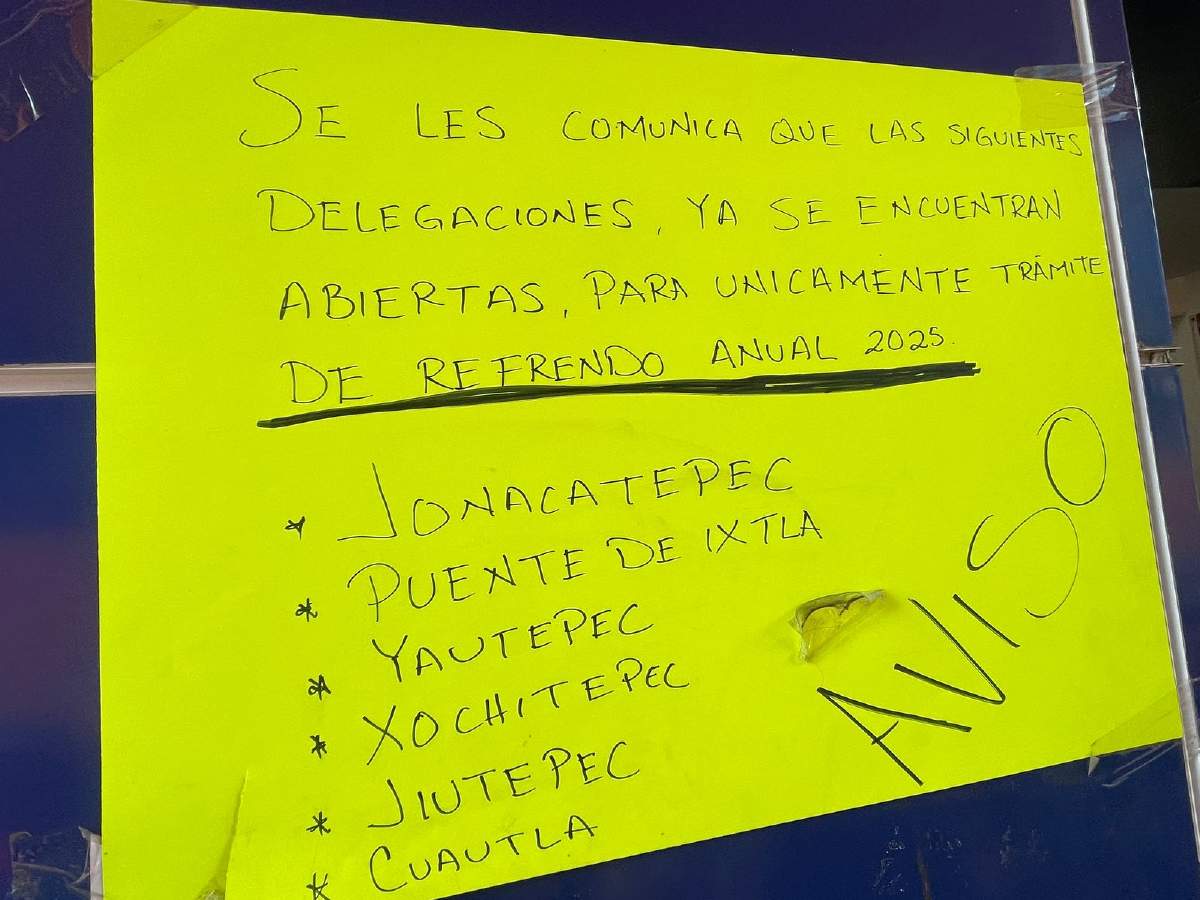 SE LES COMUNICA QUE LAS SIGUIENTES
DELEGACIONES, YA SE ENCUENTRAN
ABIERTAS, PARA UNICAMENTE TRÁMITE
DE REFRENDO ANUAL 2025.
* JONACATEPEC
* PUENTE DE IXTLA
* YAUTEPEC
* XOCHITEPEC
* JIUTEPEC
* CUAUTLA
AVISO